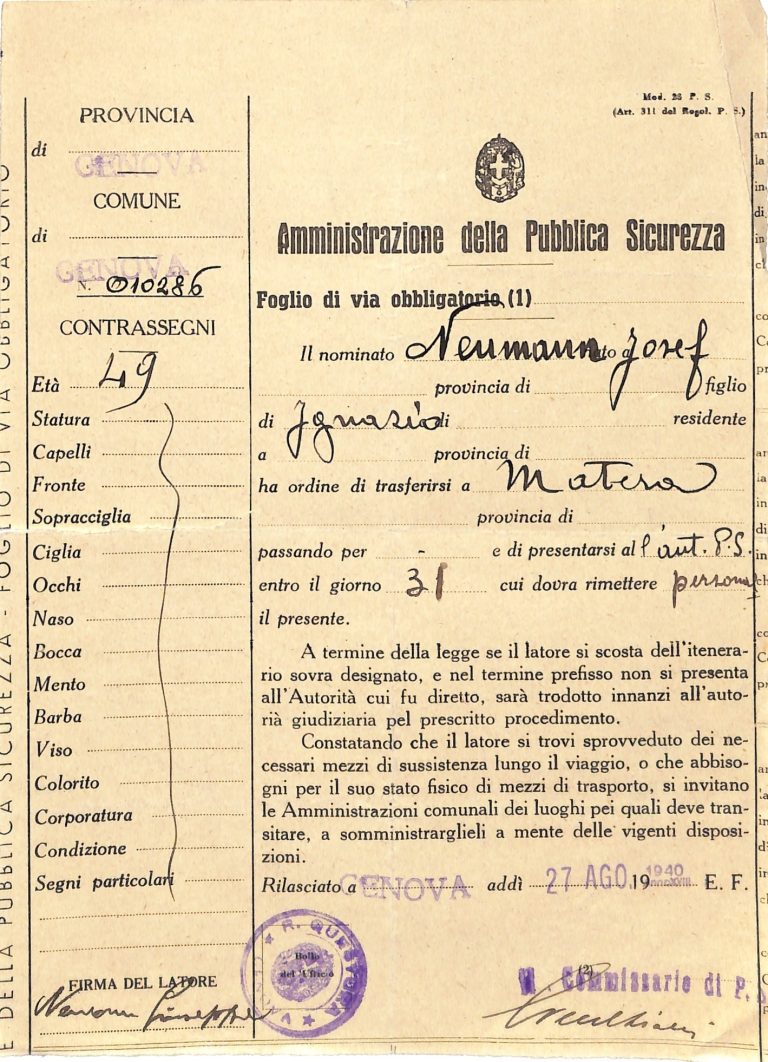 E DELLA PUBBLICA SICUREZZA - FOGLIO DI VIA OBBLIGATORIO
PROVINCIA
di GENOVA
COMUNE
di GENOVA
N. 010286
CONTRASSEGNI
Età 49
Statura
Capelli
Fronte
Sopracciglia
Ciglia
Occhi
Naso
Bocca
Mento
Barba
Viso
Colorito
Corporatura
Condizione
Segni particolari
FIRMA DEL LATORE
Neumann Giuseppe
Mod. 26 P. S.
(Art. 311 del Regol. P. S.)
Amministrazione della Pubblica Sicurezza
Foglio di via obbligatorio (1)
Il nominato Neumann Josef nato a
provincia di figlio
di Ignazio di residente
a provincia di
ha ordine di trasferirsi a Matera
provincia di
passando per - e di presentarsi al l'aut. P.S.
entro il giorno 31 cui dovra rimettere
il presente.
A termine della legge se il latore si scosta dell'itenera-
rio sovra designato, e nel termine prefisso non si presenta
all'Autorità cui fu diretto, sarà trodotto innanzi all'auto-
rià giudiziaria pel prescritto procedimento.
Constatando che il latore si trovi sprovveduto dei ne-
cessari mezzi di sussistenza lungo il viaggio, o che abbiso-
gni per il suo stato fisico di mezzi di trasporto, si invitano
le Amministrazioni comunali dei luoghi pei quali deve tran-
sitare, a somministrarglieli a mente delle vigenti disposi-
zioni.
Rilasciato a GENOVA addì 27 AGO. 19 1940 E. F.
R. QUESTURA
GENOVA
Bollo
dell'Ufficio
(2)
Commissario di P.S.